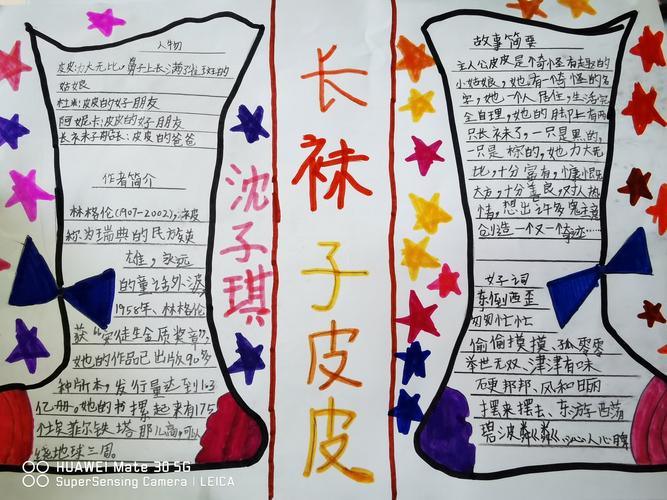 人物
皮皮:力大无比，鼻子上长满了雀斑的
姑娘
杜米:皮皮的好朋友
阿妮卡:皮皮的好朋友
长袜子船长:皮皮的爸爸
作者简介
林格伦(1907-2002),深度
称为瑞典的民族英
雄，永远
的童话外婆
1958年、林格伦
获“安徒生金质奖章”,
她的作品已出版90多
种版本，发行量达到1.3
亿册。她的书摞起来有175
个埃菲尔铁塔那儿高，可以
绕地球三周。
沈子琪
长袜子皮皮
故事简要
主人公皮皮是个奇怪有趣的
小姑娘，她有一个奇怪的名
字，她一个人居住，生活完
全自理，她的脚上有两
只长袜子，一只是黑的，
一只是棕的，她力大无
比，十分富有，慷慨
大方，十分善良，对人热
情，想出许多鬼主意
创造一个又一个奇迹……
好词
东倒西歪
匆匆忙忙
偷偷摸摸、孤零零
举世无双、津津有味
硬邦邦、风和日丽
摆来摆去、东游西荡
碧波粼粼、心人心脾
HUAWEI Mate 30 5G
SuperSensing Camera | LEICA